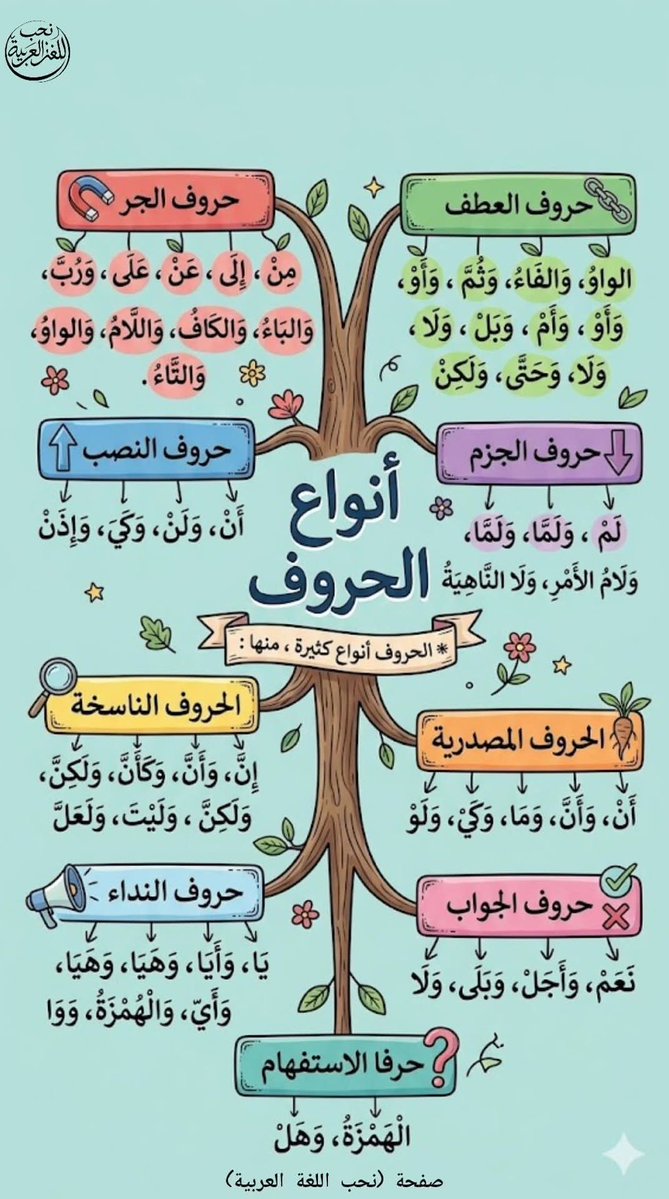 نحب
اللغة العربية
حروف العطف
الواوُ، وَالفَاءُ، وَثُمَّ ، وَأَوْ،
وَأَوْ ، وَأَمْ ، وَبَلْ ، وَلَا ،
وَلَا، وَحَتَّى، وَلَكِنْ
حروف الجر
مِنْ ، إِلَى، عَنْ، عَلَى، وَرُبَّ،
وَالبَاءُ، وَالكَافُ، وَاللَّامُ، وَالواوُ،
وَالتَّاءُ.
حروف الجزم
لَمْ ، وَلَمَّا، وَلَمَّا،
وَلَامُ الأَمْرِ، وَلَا النَّاهِيَةُ
حروف النصب
أَنْ، وَلَنْ، وَكَيَ، وَإِذَنْ
أنواع
الحروف
* الحروف أنواع كثيرة ، منها :
الحروف المصدرية
أَنْ، وَأَنَّ، وَمَا، وَكَيْ، وَلَوْ
الحروف الناسخة
إِنَّ، وَأَنَّ، وَكَأَنَّ، وَلَكِنَّ،
وَلَكِنَّ ، وَلَيْتَ، وَلَعَلَّ
حروف الجواب
نَعَمْ، وَأَجَلْ، وَبَلَى، وَلَا
حروف النداء
يَا، وَأَيَا، وَهَيَا، وَهَيَا،
وَأَيّ، وَالْهُمْزَةُ، وَوَا
حرفا الاستفهام
الْهَمْزَةُ، وَهَلْ
صفحة (نحب اللغة العربية)